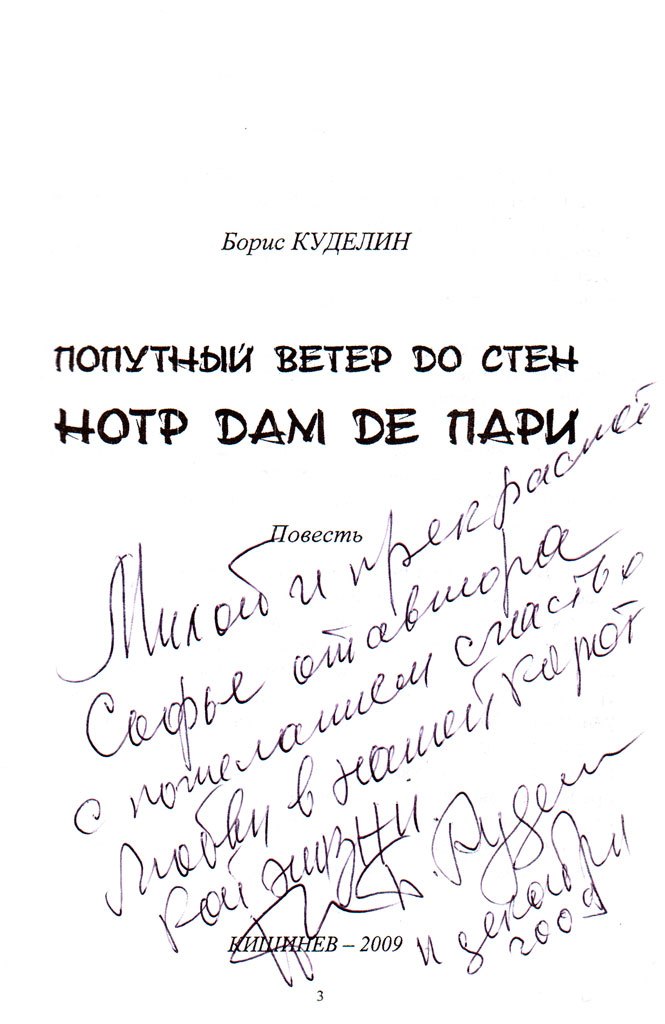 Борис КУДЕЛИН
ПОПУТНЫЙ ВЕТЕР ДО СТЕН
НОТР ДАМ DE ПАРИ
Повесть
Милой и прекрасной
Софье от автора
с пожеланием счастья
любви в нашей корот
кой жизни.
Б. Куделин
11 декабря
2009
КИШИНЕВ – 2009
3